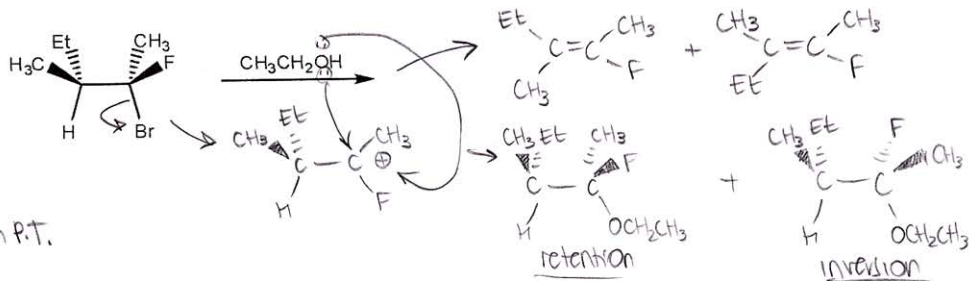 Et CH3
H3C F
H Br
CH3CH2OH
Et CH3
C=C
CH3 F
+
CH3 CH3
C=C
Et F
Et
CH3 C — C ⊕ CH3
H F
CH3 Et CH3
C — C F
H OCH2CH3
retention
+
CH3 Et F
C — C CH3
H OCH2CH3
inversion
P.T.